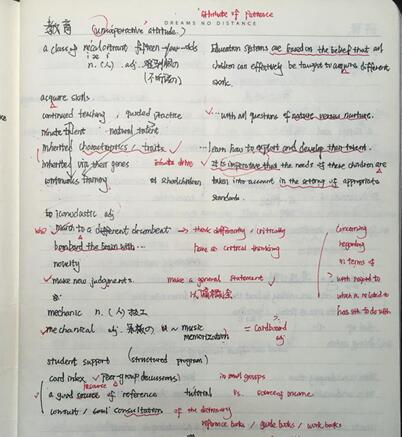 Attitude of Patience
教育 (uncooperative attitude.)
DREAMS NO DISTANCE
a class of recalcitrant fifteen-year-olds Education systems are based on the belief that
n. (人) adj. children can effectively be taught to acquire different
(不服从) skills.
acquire skills
continued teaching, guided practice ✓ ...with all questions of nature versus nurture.
innate talent natural talent
inherited characteristics / traits ✓ ...learn how to exploit and develop their talent.
inherited via their genes innate drive ✓ It is imperative that the needs of these children are
continuous training of schoolchildren taken into account in the setting of appropriate
standards.
iconoclastic adj
march to a different drumbeat → think differently / critically concerning
bombard the brain with... have a critical thinking regarding
novelty in terms of
✓ make new judgments. make a general statement ✓ with regard to
以偏概全 when it related to
mechanic n. (人) 技工 has sth to do with
✓ mechanical adj. ~ music = cardboard
memorization) adj
student support (structured program)
card index ✓ peer-group discussions) in small groups
resource
a good source of reference tutorial vs. source of income
consult / consultation of the dictionary
reference books / guide books / work books